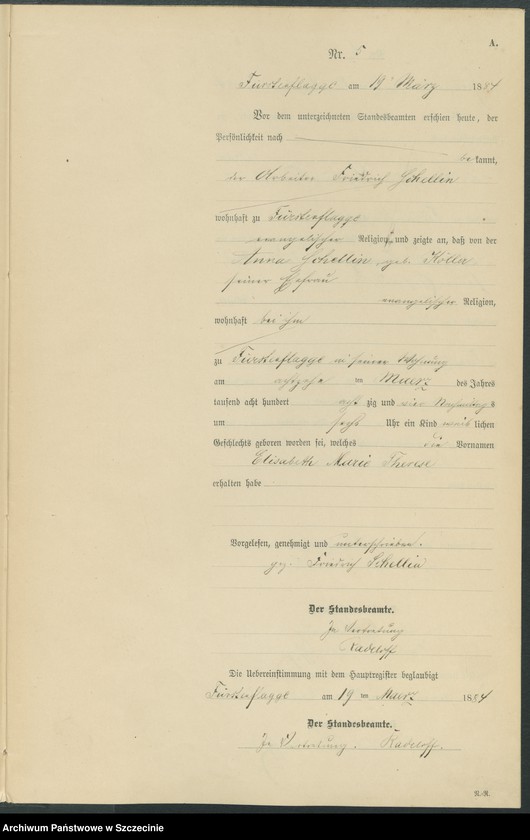 A.
Nr. 5
Fürstenflagge am 19 März 1884
Vor dem unterzeichneten Standesbeamten erschien heute, der
Persönlichkeit nach
bekannt,
der Arbeiter Friedrich Schellin
wohnhaft zu Fürstenflagge
evangelischer Religion, und zeigte an, daß von der
Anna Schellin, geb. Kölln
seiner Ehefrau
evangelischer Religion,
wohnhaft bei ihm
zu Fürstenflagge in seiner Wohnung
am achtzehn ten Maerz des Jahres
tausend acht hundert acht zig und vier Nachmittags
um sechs Uhr ein Kind weiblichen
Geschlechts geboren worden sei, welches die Vornamen
Elisabeth Marie Therese
erhalten habe
Vorgelesen, genehmigt und unterschrieben.
gez. Friedrich Schellin
Der Standesbeamte.
In Vertretung
Radeloff
Die Uebereinstimmung mit dem Hauptregister beglaubigt
Fürstenflagge am 19 ten Maerz 1884
Der Standesbeamte.
In Vertretung. Radeloff.
N.-R.
Archiwum Państwowe w Szczecinie